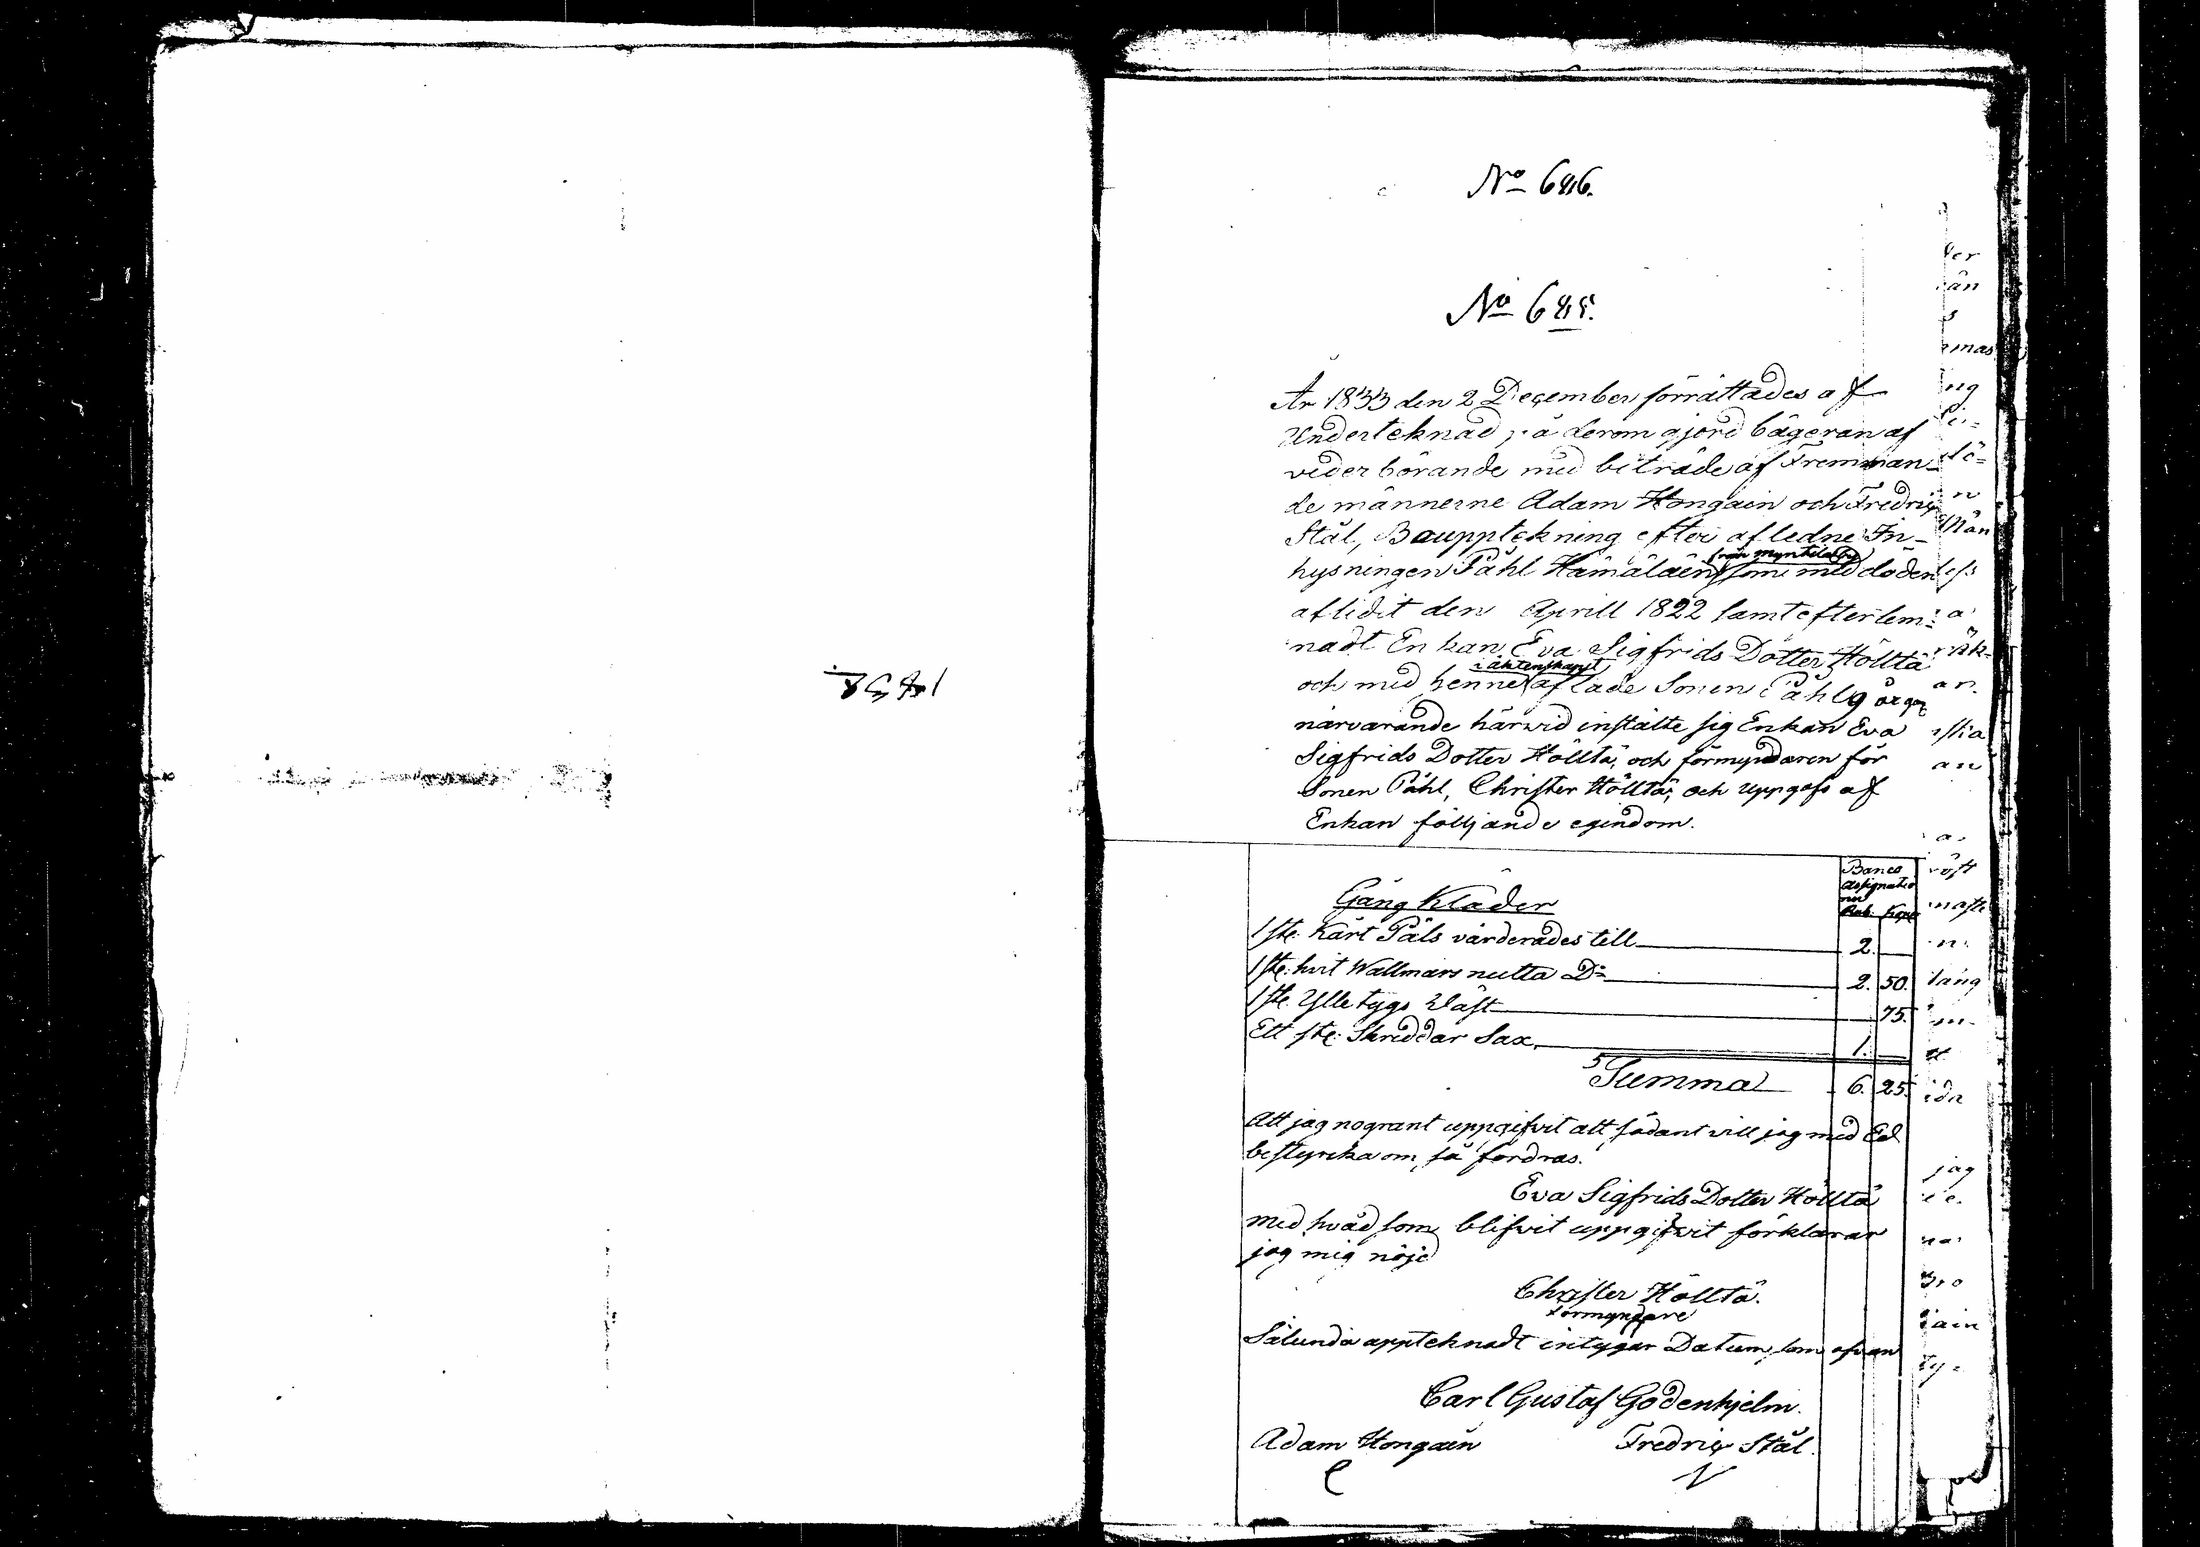 No 686.
No 685.
År 1833 den 2 December förrättades af
Underteknad på derom gjord bägeran af
veder börande med biträde af Fremman-
de männerne Adam Hongain och Fredrix
Stål, Bouppteckning efter afledne In-
från Myntilä by
hysningen Påhl Hämäläin som med döden
aflidit den Aprill 1822 samt efterlem-
nadt Enkan Eva Sigfrids Dotter Hölltä
i äktenskapet
och med henne aflade Sonen Påhl 9 år gam
närvarande härwid instälte sig Enkan Eva
Sigfrids Dotter Hölltä, och förmyndaren för
Sonen Påhl, Christer Hölltä, och uppgafs af
Enkan följande egendom.
Banco
Assignatio
ner
Rub. Kope
Gång Kläder
1 ste. Kärt Päls värderades till 2.
1 ste. hvit Wallmars nutta Do 2. 50.
1 ste. Ylle tygs Wäst 75.
Ett ste. Skreddar Sax, 1.
Summa 6. 25.
Att jag nogrant uppgifvit alt sådant vill jag med Ed
bestyrka om så fordras.
Eva Sigfrids Dotter Hölltä
med hvad som blifvit uppgifvit förklarar
jag mig nöjd
Christer Hölltä.
Förmyndare
Sålunda uppteknadt intygar Datum som ofvan
Carl Gustaf Godenhjelm.
Adam Hongain Fredrix Stål.